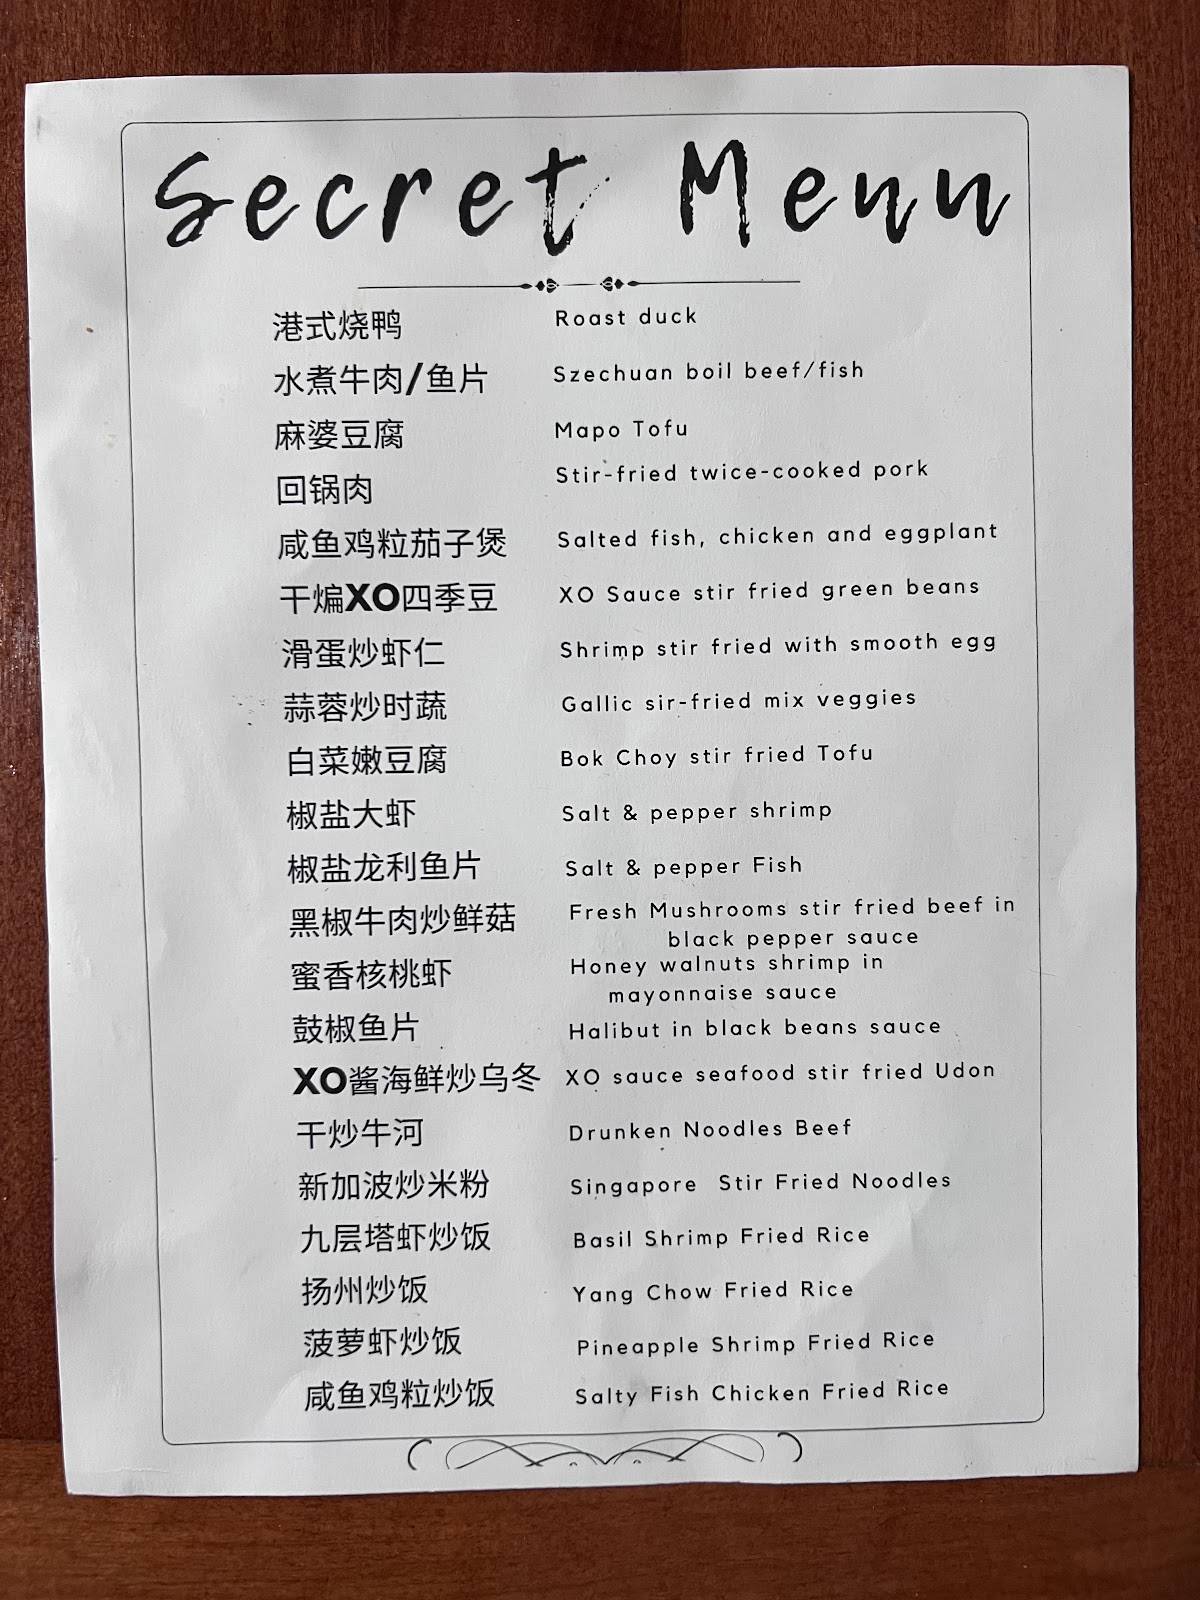 Secret Menu
港式烧鸭 Roast duck
水煮牛肉/鱼片 Szechuan boil beef/fish
麻婆豆腐 Mapo Tofu
回锅肉 Stir-fried twice-cooked pork
咸鱼鸡粒茄子煲 Salted fish, chicken and eggplant
干煸XO四季豆 XO Sauce stir fried green beans
滑蛋炒虾仁 Shrimp stir fried with smooth egg
蒜蓉炒时蔬 Gallic sir-fried mix veggies
白菜嫩豆腐 Bok Choy stir fried Tofu
椒盐大虾 Salt & pepper shrimp
椒盐龙利鱼片 Salt & pepper Fish
黑椒牛肉炒鲜菇 Fresh Mushrooms stir fried beef in
black pepper sauce
蜜香核桃虾 Honey walnuts shrimp in
mayonnaise sauce
鼓椒鱼片 Halibut in black beans sauce
XO酱海鲜炒乌冬 XO sauce seafood stir fried Udon
干炒牛河 Drunken Noodles Beef
新加波炒米粉 Singapore Stir Fried Noodles
九层塔虾炒饭 Basil Shrimp Fried Rice
扬州炒饭 Yang Chow Fried Rice
菠萝虾炒饭 Pineapple Shrimp Fried Rice
咸鱼鸡粒炒饭 Salty Fish Chicken Fried Rice